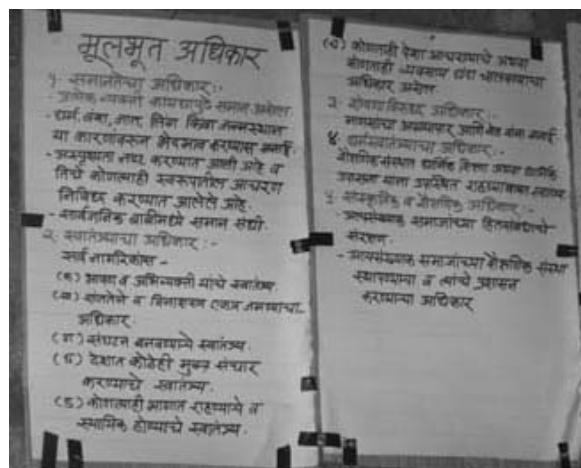 मूलभूत अधिकार
१- समानतेचा अधिकार :-
- प्रत्येक व्यक्ती कायद्यापुढे समान असेल.
- धर्म, वंश, जात, लिंग किंवा जन्मस्थान
या कारणांवरून भेदभाव करण्यास मनाई.
- अस्पृश्यता नष्ट करण्यात आली आहे व
तिचे कोणत्याही स्वरूपातील आचरण
निषिध्द करण्यात आलेले आहे.
- सार्वजनिक बाबींमध्ये समान संधी.
२. स्वातंत्र्याचा अधिकार :-
सर्व नागरिकांस -
(क) भाषण व अभिव्यक्ती यांचे स्वातंत्र्य.
(ख) शांततेने व विनाशस्त्र एकत्र जमण्याचा
अधिकार.
(ग) संघटन बनवण्याचे स्वातंत्र्य
(घ) देशात कोठेही मुक्त संचार
करण्याचे स्वातंत्र्य.
(ड) कोणत्याही भागात राहण्याचे व
स्थायिक होण्याचे स्वातंत्र्य.
(च) कोणताही पेशा आचरण्याचे अथवा
कोणताही व्यवसाय धंदा चालवण्याचा
अधिकार असेल
३- शोषणाविरुध्द अधिकार :-
माणसांचा अपव्यापार आणि वेठ यांना मनाई
४. धर्मस्वातंत्र्याचा अधिकार :-
शैक्षणिक संस्थात धार्मिक शिक्षण अथवा धार्मिक
उपासना यांना उपस्थित राहण्याबाबत स्वातंत्र्य
५- सांस्कृतिक व शैक्षणिक अधिकार :-
- अल्पसंख्याक समाजांच्या हितसंबंधाचे
संरक्षण.
- अल्पसंख्याक समाजांच्या शैक्षणिक संस्था
स्थापण्याचा व त्यांचे प्रशासन
करण्याचा अधिकार